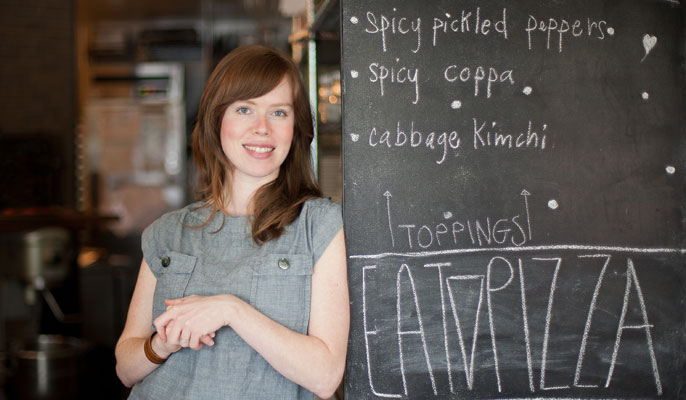 spicy pickled peppers
spicy coppa
cabbage Kimchi
TOPPINGS
EAT PIZZA